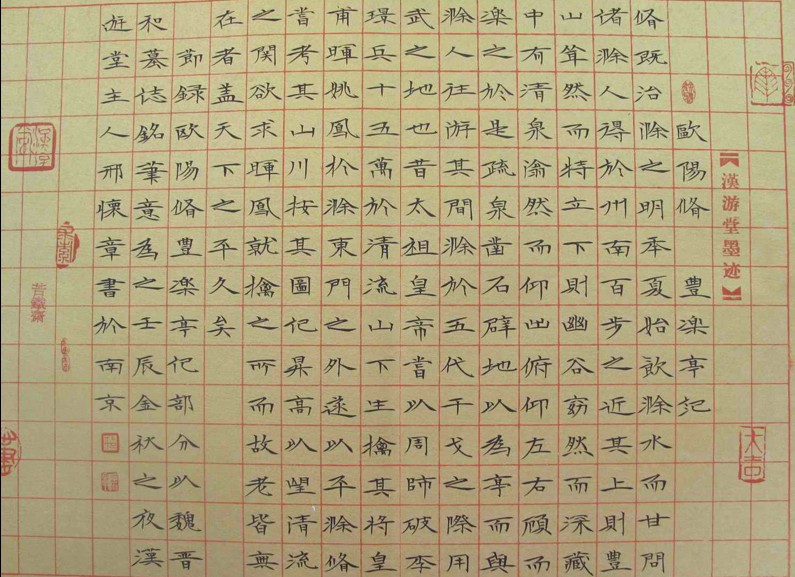 【漢游堂墨迹】
歐陽脩 豐樂亭记
脩既治滁之明年夏始飲滁水而甘問
诸滁人得於州南百步之近其上則豐
山耸然而特立下則幽谷窈然而深藏
中有清泉滃然而仰出俯仰左右顧而
樂之於是疏泉鑿石辟地以為亭而與
滁人往游其間滁於五代干戈之際用
武之地也昔太祖皇帝嘗以周師破李
璟兵十五萬於清流山下生擒其将皇
甫暉姚鳳於滁東門之外遂以平滁脩
嘗考其山川按其圖记昇高以望清流
之関欲求暉鳳就擒之所而故老皆無
在者盖天下之平久矣
節録歐陽脩豐樂亭记部分以魏晋
和墓志銘筆意為之壬辰金秋之夜漢
遊堂主人邢懷章書於南京
大吉